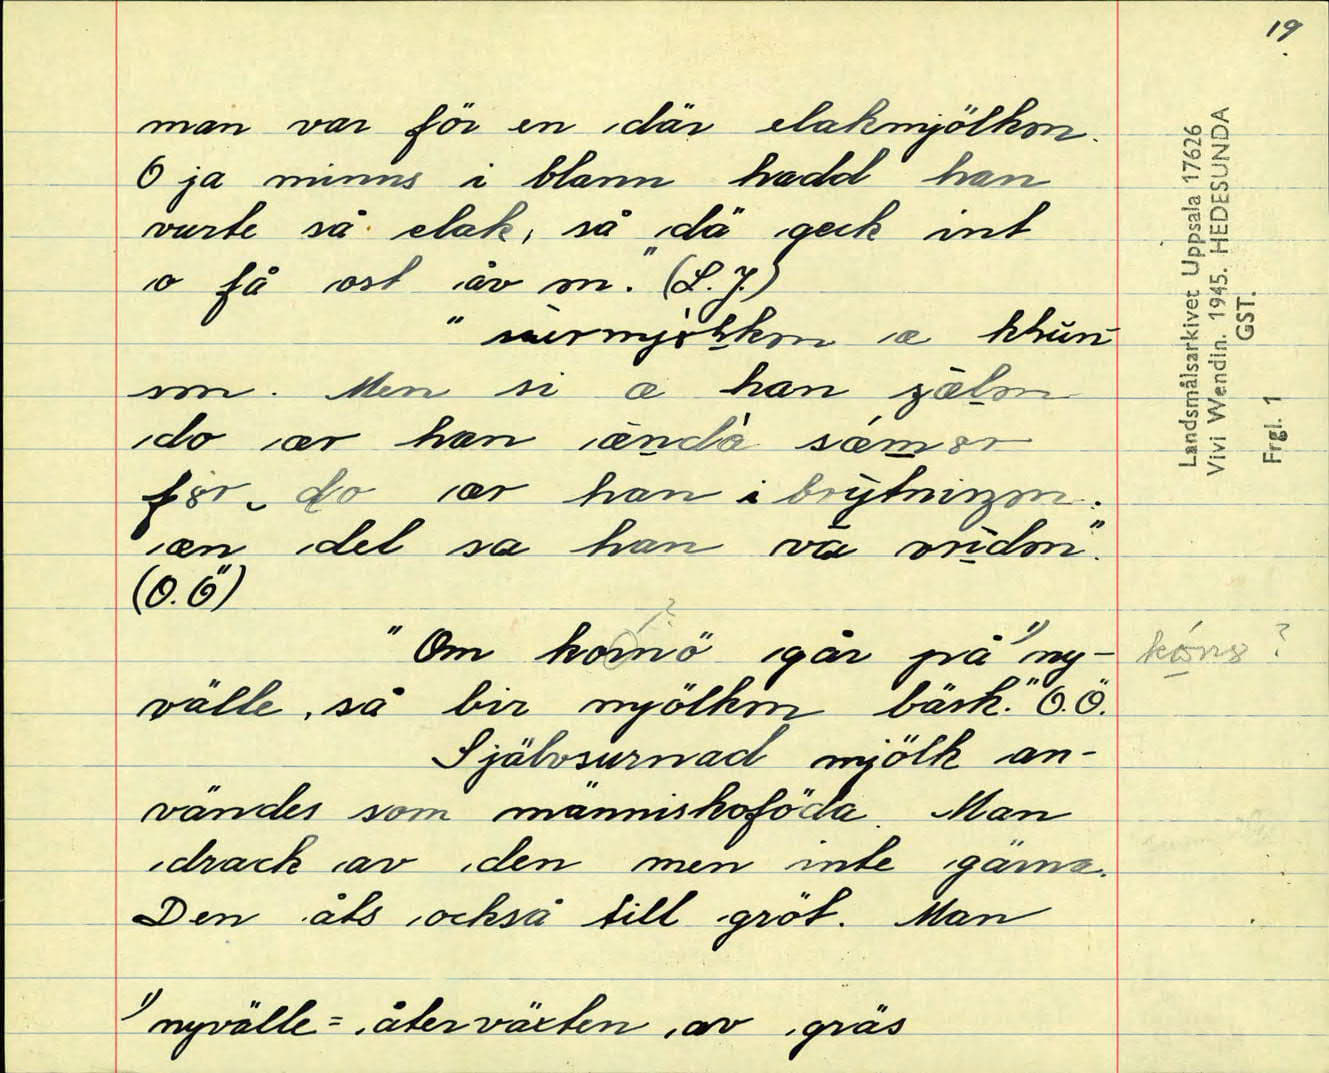 19
man var för en där elakmjölken.
O ja minns i blann hadd han
vurte så elak, så dä geck int
o få ost åv en." (L.J.)
"
æ
Men si æ han
do ær han ændå
før do ær han i
æn del sa han va
(O.Ö)
"Om kornö går på ¹⁾ny-
?
välle, så bir mjölken bäsk." O.Ö.
Självsurnad mjölk an-
vändes som människoföda. Man
drack av den men inte gärna.
Den åts också till gröt. Man
¹⁾nyvälle = återväxten av gräs
Landsmålsarkivet Uppsala 17626
Vivi Wendin. 1945. HEDESUNDA
GST.
Frgl. 1